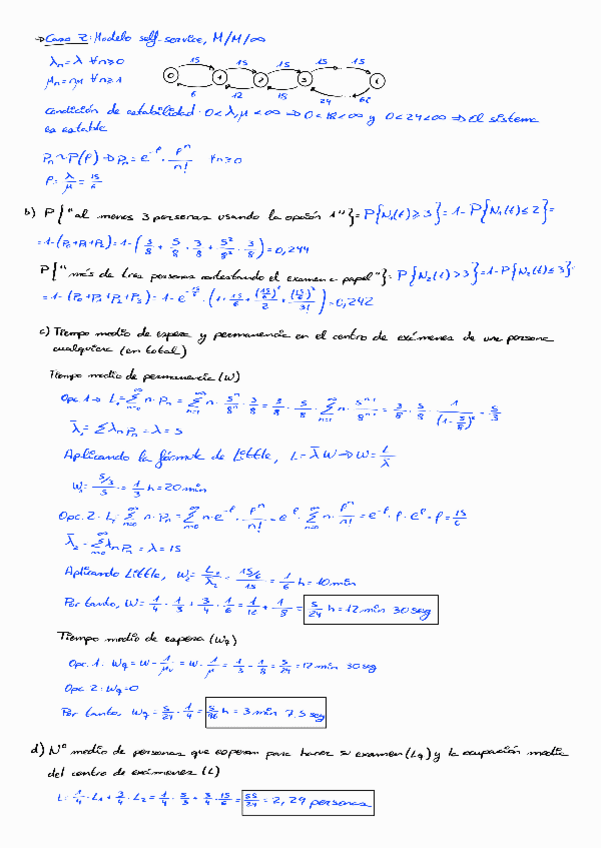 → Caso 2: Modelo self-service, M/M/∞
λn = λ ∀n≥0
μn = nμ ∀n≥1
15 15 15 15 15
0 1 2 3 i
6 12 15 24 6i
Condición de estabilidad: 0<λ,μ<∞ → 0<18<∞ y 0<24<∞ → El sistema
es estable
Pn ~ P(ρ) → Pn = e^-ρ · ρ^n/n! ∀n≥0
ρ = λ/μ = 15/6
b) P{"al menos 3 personas usando la opción 1"} = P{N1(t) ≥ 3} = 1 - P{N1(t) ≤ 2} =
= 1-(P0+P1+P2) = 1-(3/8 + 5/8 · 3/8 + 5²/8² · 3/8) = 0,244
P{"más de tres personas contestando el examen a papel"} = P{N2(t) > 3} = 1-P{N2(t) ≤ 3} =
= 1-(P0+P1+P2+P3) = 1-e^-15/6 · (1 + 15/6 + (15/6)²/2 + (15/6)³/3!) = 0,242
c) Tiempo medio de espera y permanencia en el centro de exámenes de una persona
cualquiera (en total)
Tiempo medio de permanencia (W)
Opc. 1 → L1 = Σ n · Pn = Σ n · 5^n/8^n · 3/8 = 3/8 · 5/8 · Σ n · 5^n-1/8^n-1 = 3/8 · 5/8 · 1/(1-5/8)² = 5/3
λ̄1 = Σ λn Pn = λ = 5
Aplicando la fórmula de Little, L = λ̄ W → W = L/λ̄
W1 = 5/3/5 = 1/3 h = 20 min
Opc. 2 · L2 = Σ n · Pn = Σ n · e^-ρ · ρ^n/n! = e^-ρ · Σ n · ρ^n/n! = e^-ρ · ρ · e^ρ = ρ = 15/6
λ̄2 = Σ λn Pn = λ = 15
Aplicando Little, W2 = L2/λ̄2 = 15/6/15 = 1/6 h = 10 min
Por tanto, W = 1/4 · 1/3 + 3/4 · 1/6 = 1/12 + 1/8 = 5/24 h = 12 min 30 seg
Tiempo medio de espera (Wq)
Opc. 1 · Wq = W - 1/μ = W - 1/μ = 1/3 - 1/8 = 5/24 = 12 min 30 seg
Opc 2: Wq = 0
Por tanto, Wq = 5/24 · 1/4 = 5/96 h = 3 min 7.5 seg
d) Nº medio de personas que esperan para hacer su examen (Lq) y la ocupación media
del centro de exámenes (L)
L = 1/4 · L1 + 3/4 · L2 = 1/4 · 5/3 + 3/4 · 15/6 = 55/24 = 2,29 personas